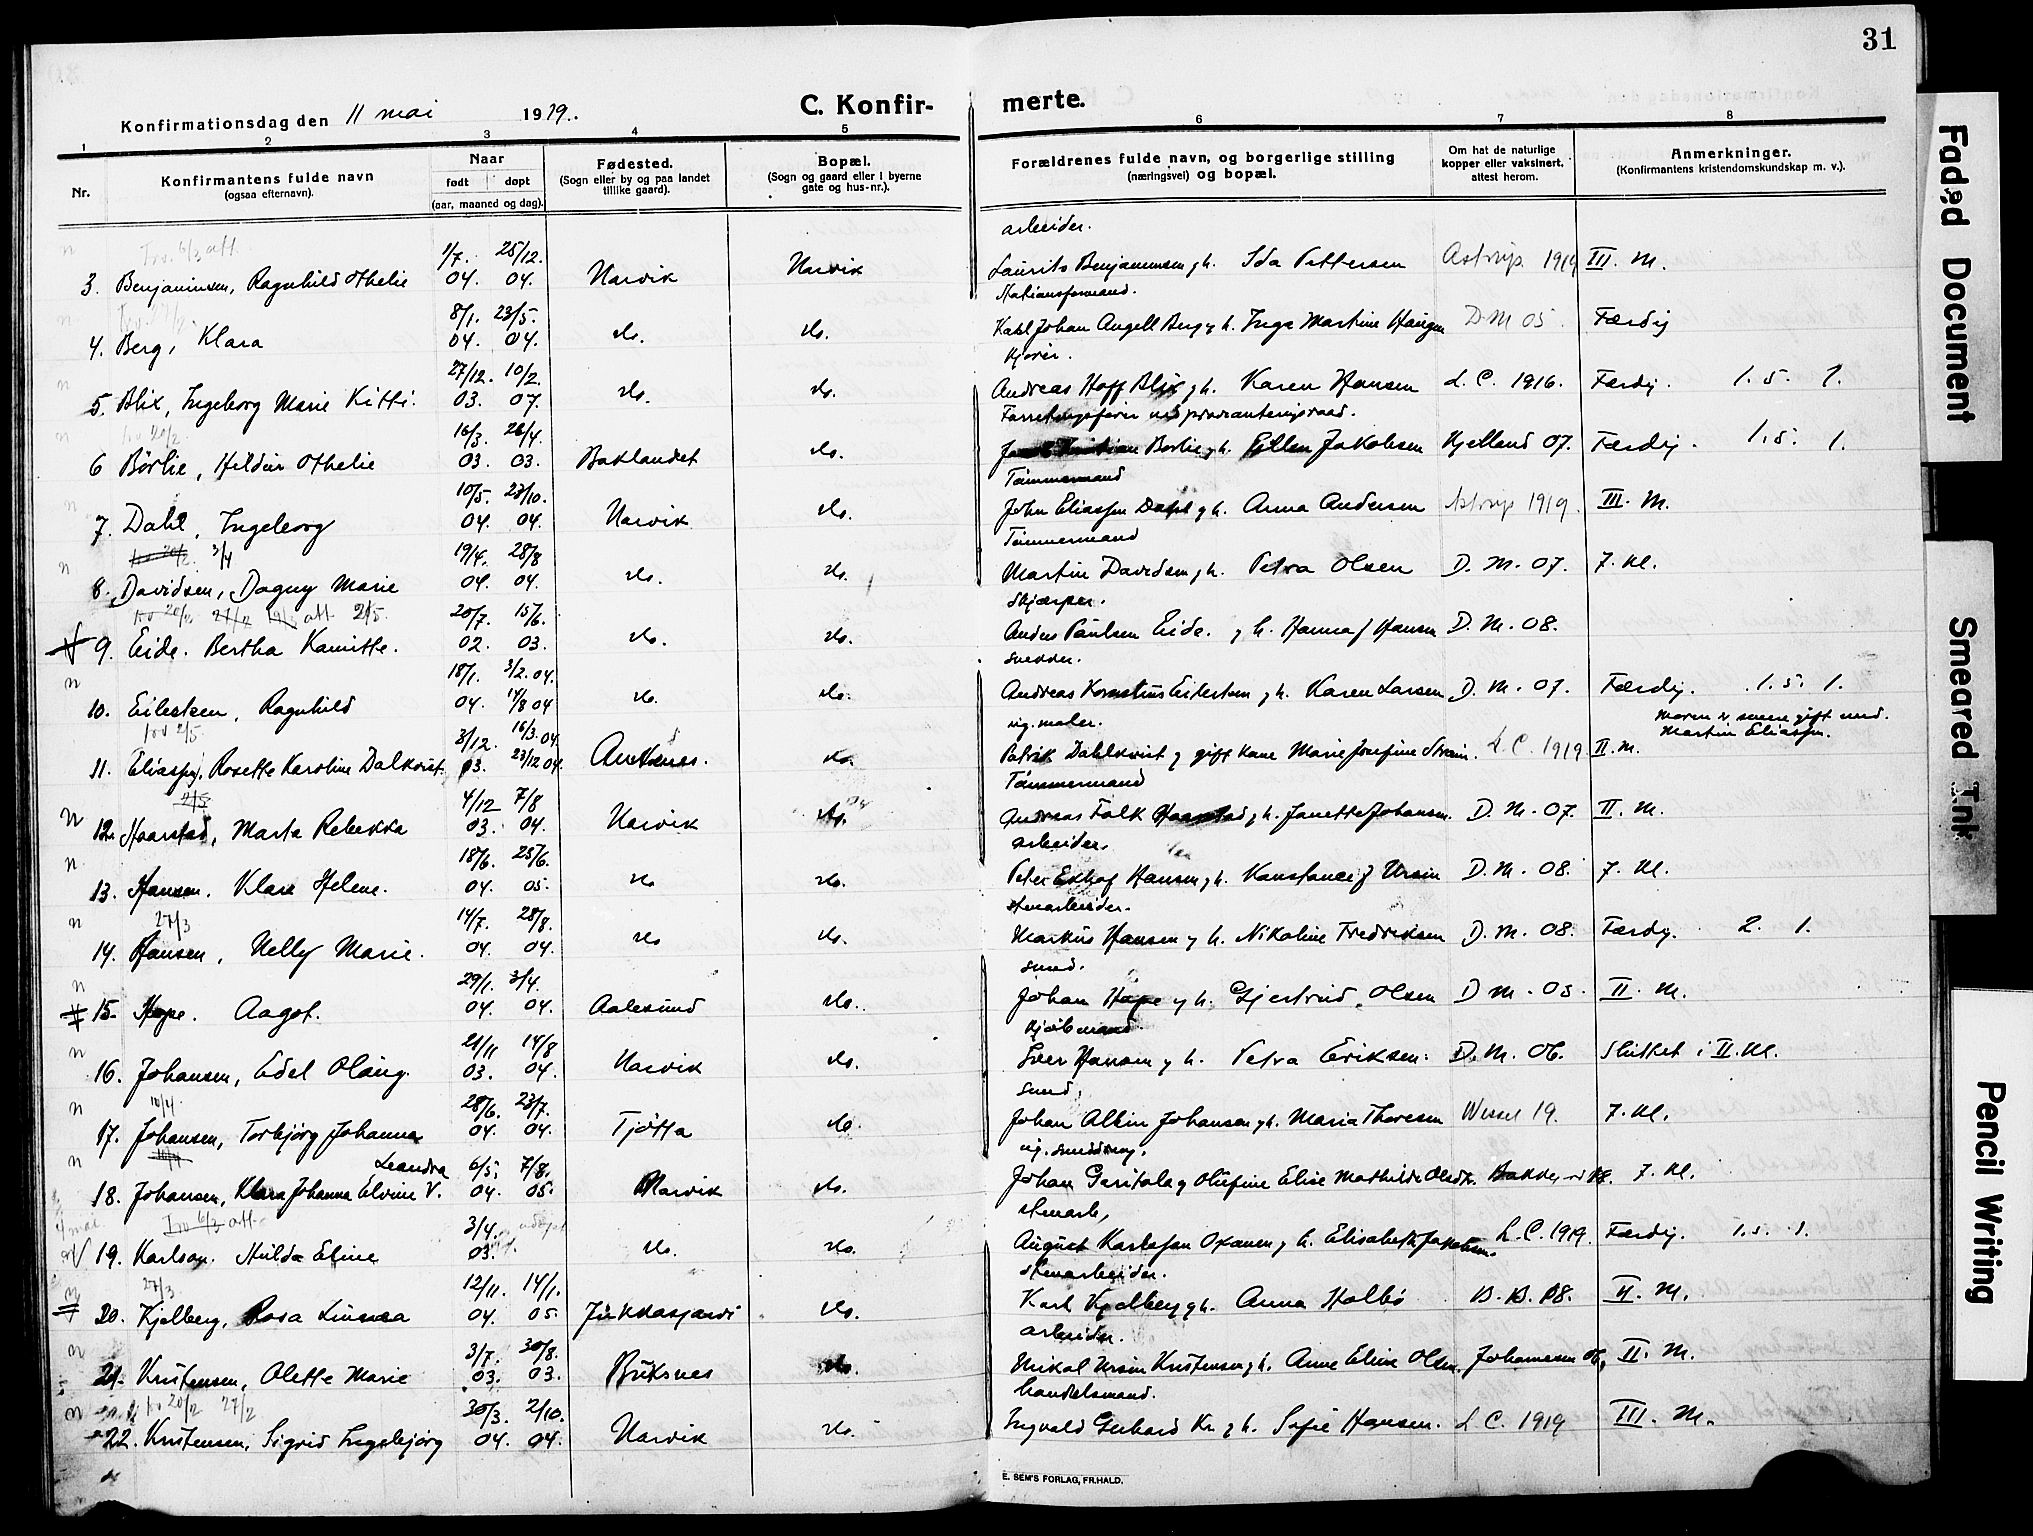 31
Konfirmationsdag den 11 mai 1919.
C. Konfir-
merte.
1 2 3 4 5 6 7 8
Nr.
Konfirmantens fulde navn
(ogsaa efternavn).
Naar
født døpt
(aar, maaned og dag).
Fødested.
(Sogn eller by og paa landet
tillike gaard).
Bopæl.
(Sogn og gaard eller i byerne
gate og hus-nr.).
Forældrenes fulde navn, og borgerlige stilling
(næringsvei) og bopæl.
Om hat de naturlige
kopper eller vaksinert.
attest herom.
Anmerkninger.
(Konfirmantens kristendomskundskap m. v.).
arbeider.
1/7. 25/12.
3. Benjaminsen, Ragnhild Othelie 04. 04. Narvik Narvik Laurits Benjaminsen, h. Ida Pettersen Astrup 1919 III. M.
Stationsformand.
8/1. 23/5.
4. Berg, Klara 04. 04. do. do. Karl Johan Angell Berg y h. Inga Martine Haugen D M 05. Færdig
Kjører.
27/12. 10/2.
5. Blix, Ingeborg Marie Kitti. 03. 07. do. do. Andreas Hoff Blix y h. Karen Hansen L. C. 1916. Færdig. 1.5. 1.
Forretningsfører ved provianteringsraad.
16/3. 26/4.
6 Børlie, Hildur Othelie 03. 03. Baklandet do. Kristian Børlie y h. Ellen Jakobsen Kjelland 07. Færdig. 1.5. 1.
Tømmermand
10/5. 23/10.
7. Dahl, Ingeborg 04. 04. Narvik do. John Eliassen Dahl y h. Anna Andersen Astrup 1919. III. M.
Tømmermand
19/4. 28/8
8. Davidsen, Dagny Marie 04. 04. do. do. Martin Davidsen y h. Petra Olsen D. M. 07. 7. kl.
Skjærper.
20/7. 15/6.
9. Eide. Bertha Kamitte. 02. 03. do. do. Anders Paulsen Eide. y h. Hanna J Hansen D. M. 08.
Snekker.
18/1. 3/2.04.
10. Eilertsen, Ragnhild 04. 14/8 04 do. do. Andreas Kornelius Eilertsen y h. Karen Larsen D. M. 07. Færdig. 1.5. 1.
sig. maler.
Moren er senere gift med.
Martin Eliassen.
3/12. 16/3.04.
11. Eliassen, Rosette Karoline Dalkvist. 03. 23/12 04. Ankenes. do. Patrik Dahlkvist y gift kone Marie Josefine Strøm. L. C. 1919 II. M.
Tømmermand
4/12 7/8
12. Haarstad, Marta Rebekka 03. 04. Narvik do. Andreas Falk Haarstad y h. Janette Johansen. D. M. 07. II. M.
arbeider.
18/6. 25/6.
13. Hansen. Klara Helene. 04. 05. do do. Peter Hansen y h. Konstance J Ursin D. M. 08. 7. kl.
Stenarbeider.
27/3 14/7. 28/8.
14. Hansen, Nelly Marie. 04. 04. do do. Markus Hansen y h. Nikoline Fredriksen D. M. 08. Færdig. 2. 1.
smed.
29/1. 3/4.
15. Hope. Aagot. 04. 04. Aalesund do. Johan Hope y h. Gjertrud Olsen D M. 05. II. M.
Kjøbmand
21/11 14/8
16. Johansen, Edel Olaug. 03. 04. Narvik do. Iver Hansen y h. Petra Eriksen. D. M. 06. Sluttet i II. kl.
Smed.
10/4 28/6. 23/7.
17. Johansen, Torbjørg Johanna 04. 04. Tjøtta do. Johan Albin Johansen y h. Maria Thoresen Wessel 19. 7. kl.
Leandra 6/5. 7/8.
18. Johansen, Klara Johanna Elvine V. 04. 05. Narvik do. Johan y Olufine Elise Mathilde 7. kl.
Stenarb,
3/4.
19. Karlson. Hulda Eline 03. do. do. August Karlson y h. Elisabeth L. C. 1919. Færdig. 1.5. 1.
Stenarbeider.
27/3 12/11. 14/1.
20. Kjelberg, Rosa Linnea 04. 05. Jukkasjarvi do. Karl Kjelberg y h. Anna Holbø B. B. 08. II. M.
arbeider.
3/7. 30/8.
21. Kristensen, Olette Marie 03. 03. Buksnes do. Nikal Ursin Kristensen y h. Anne Eline Olsen. Johannesen 06, II. M.
handelsmand.
30/3. 2/10.
22. Kristensen, Sigrid Ingebjørg 04. 04. Narvik do. Ingvald Gerhard Kr. y h. Sofie Hansen. L C. 1919 III. M.
E. SEM'S FORLAG, FR.HALD.
Faded Document
Smeared Ink
Pencil Writing